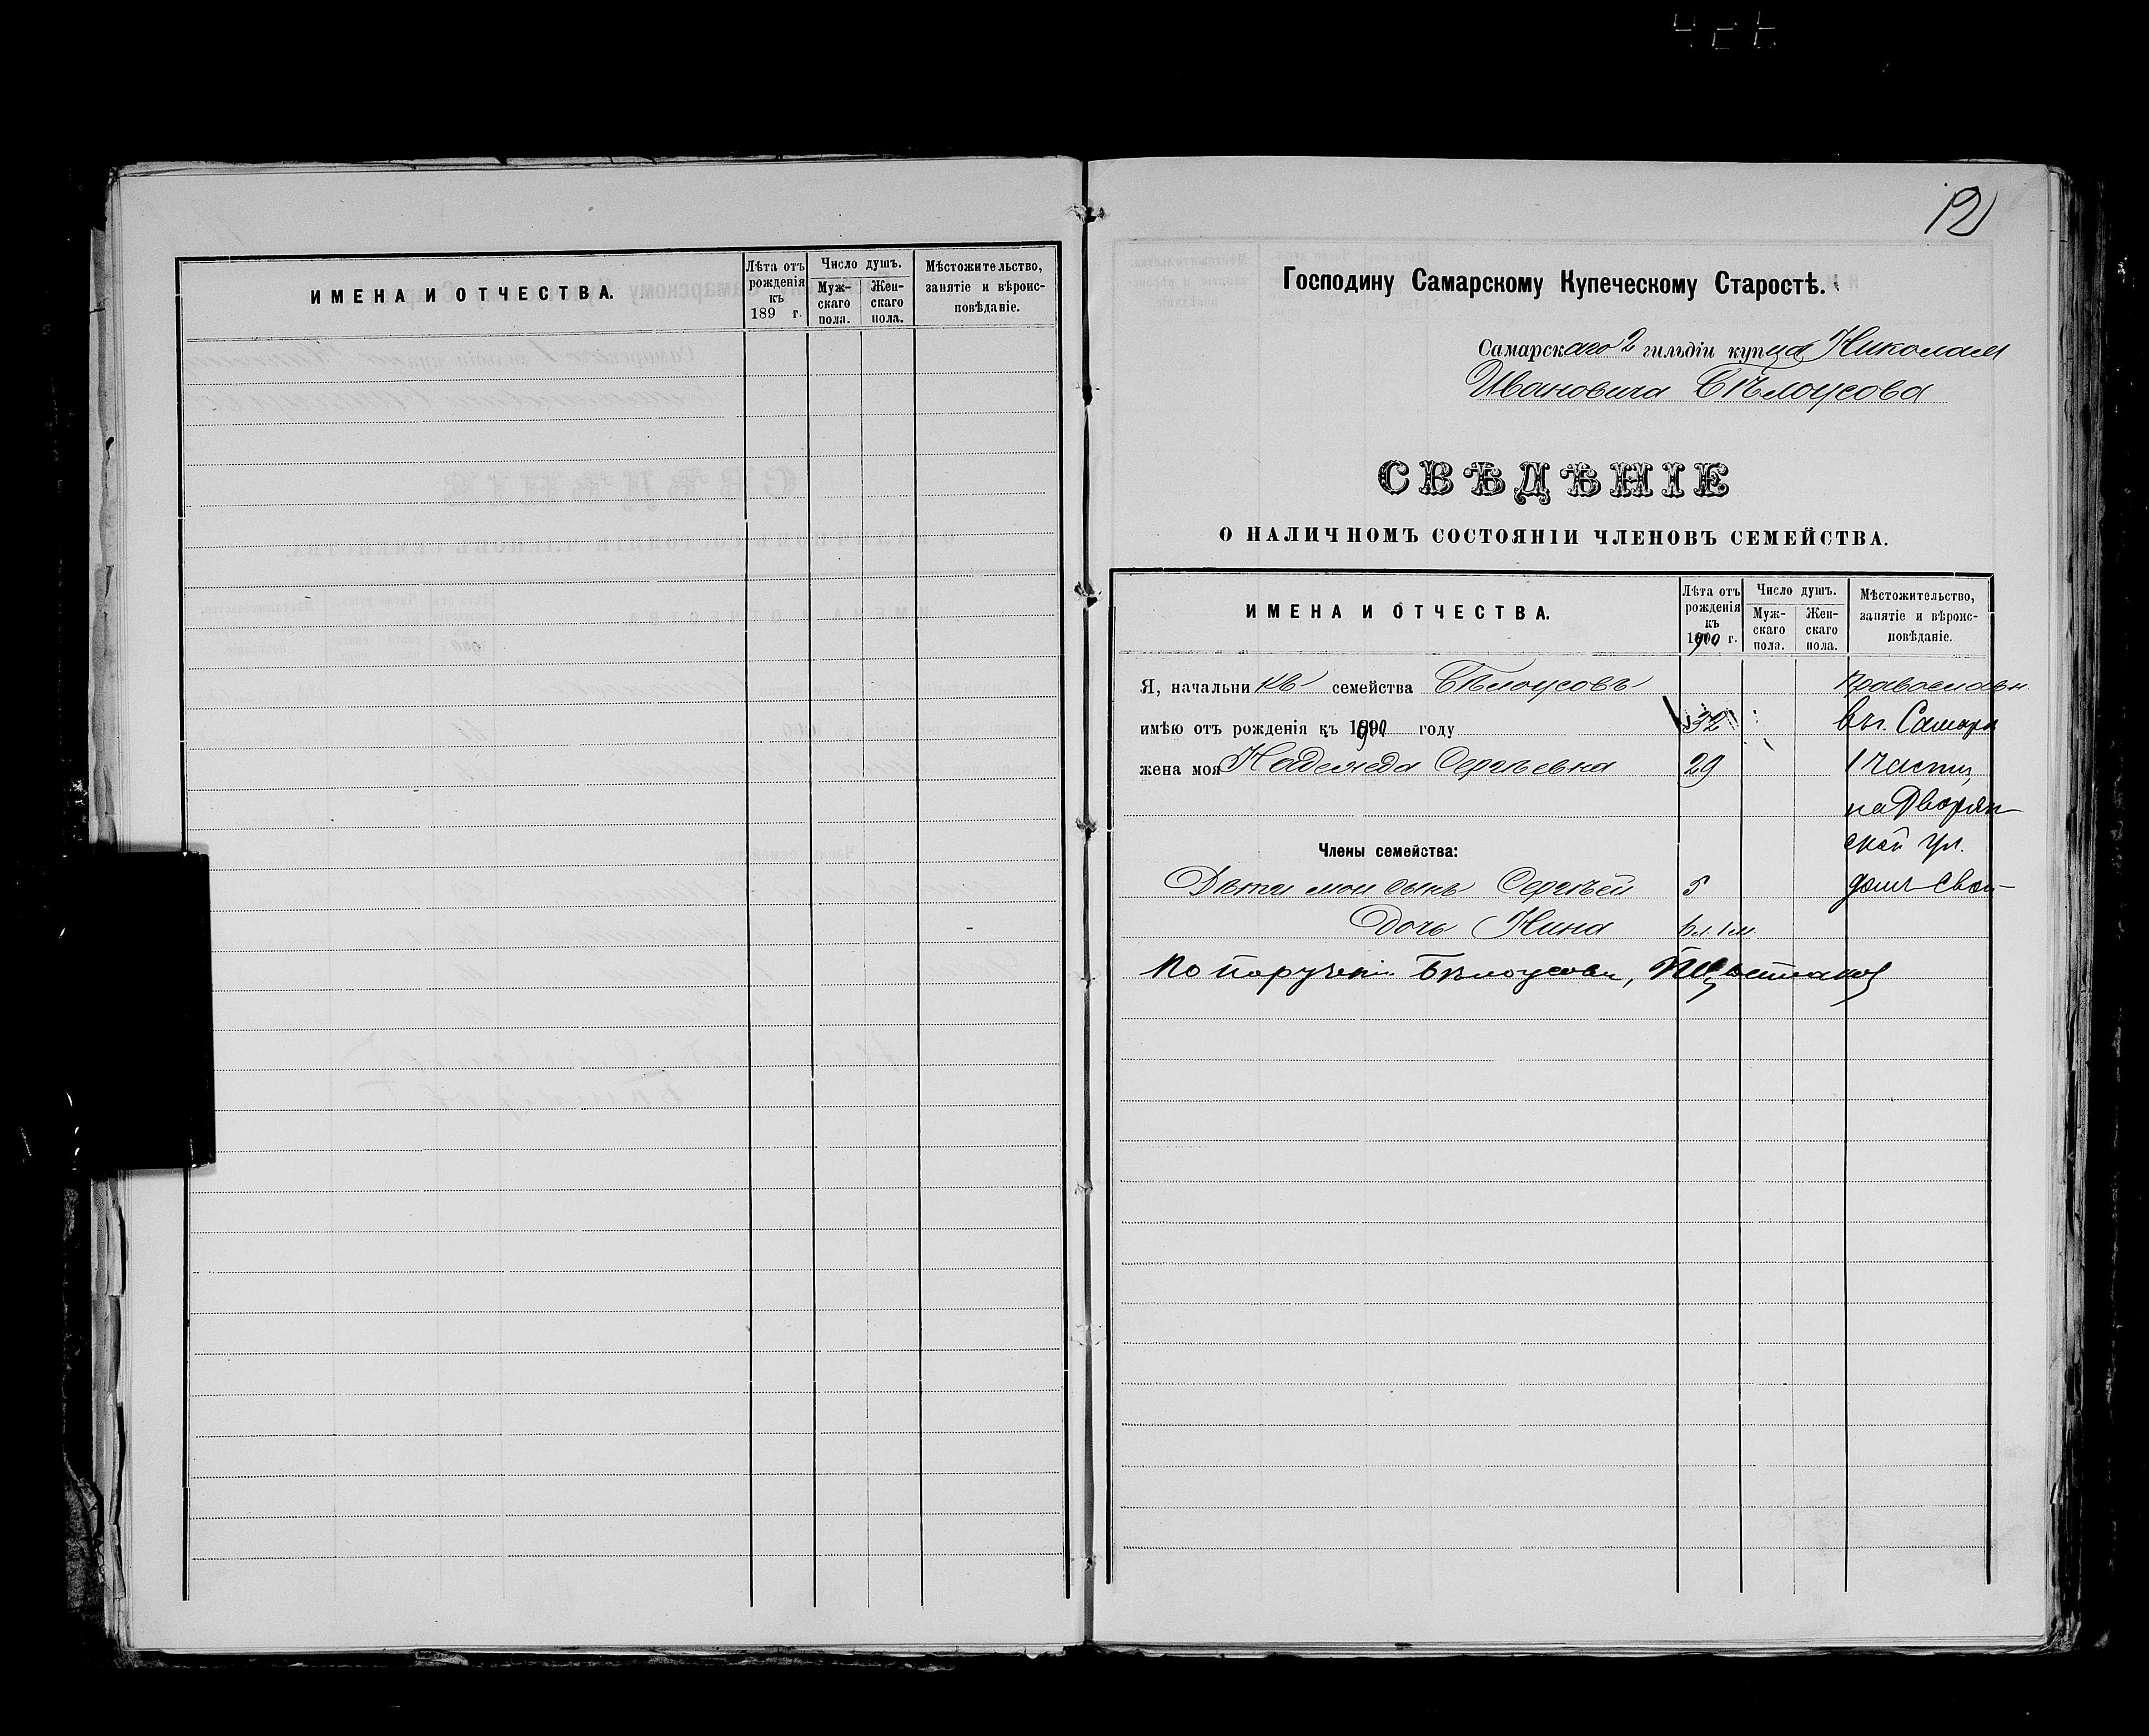 ИМЕНА И ОТЧЕСТВА.
Лѣта отъ рожденія къ 189 г.
Число душъ.
Мужскаго пола.
Женскаго пола.
Мѣстожительство, занятіе и вѣроисповѣданіе.
12
Господину Самарскому Купеческому Старостѣ.
Самарскаго 2 гильдіи купца Николая
Ивановича Бѣлоусова
СВѢДѢНІЕ
О НАЛИЧНОМЪ СОСТОЯНІИ ЧЛЕНОВЪ СЕМЕЙСТВА.
ИМЕНА И ОТЧЕСТВА.
Лѣта отъ рожденія къ 1900 г.
Число душъ.
Мужскаго пола.
Женскаго пола.
Мѣстожительство, занятіе и вѣроисповѣданіе.
Я, начальникъ семейства Бѣлоусовъ Православн
имѣю отъ рожденія къ 1900 году 32 въ г. Самарѣ
жена моя Надежда Сергѣевна 29 1 части,
на Дворян-
ской ул.
Члены семейства:
Дѣти мои сынъ Сергѣй 5 домъ свой
Дочь Нина 1 м.
По порученію Бѣлоусова,